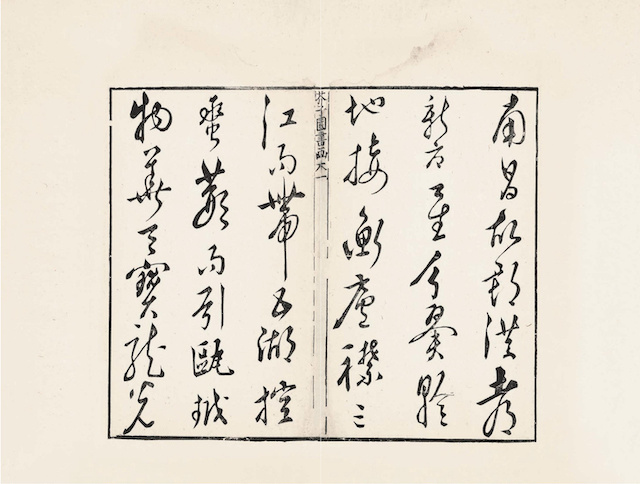 南昌故郡洪都
新府星分翼軫
地接衡廬襟三
芥子園書画
江而帶五湖控
蠻荊而引甌越
物華天寶龍光